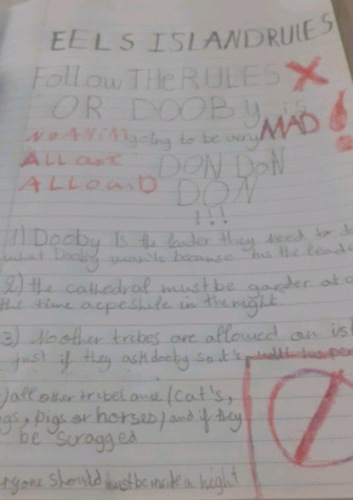 EELS ISLAND RULES
Follow THE RULES
OR DOOBY is
going to be very MAD
NO ANIM
ALL are
ALLOWID
DON DON
DON
!!!
1) Dooby Is the leader they need to d
what Dooby because the leade
2) the cathedral must be garder at a
the time acpeshile in the night
3) No other tribes are allowed on ist
just if they ask dooby so it's with his per
) all other tribe are (cat's,
gs, pigs or horses) and if they
be Scragged
ryone should be inside a night